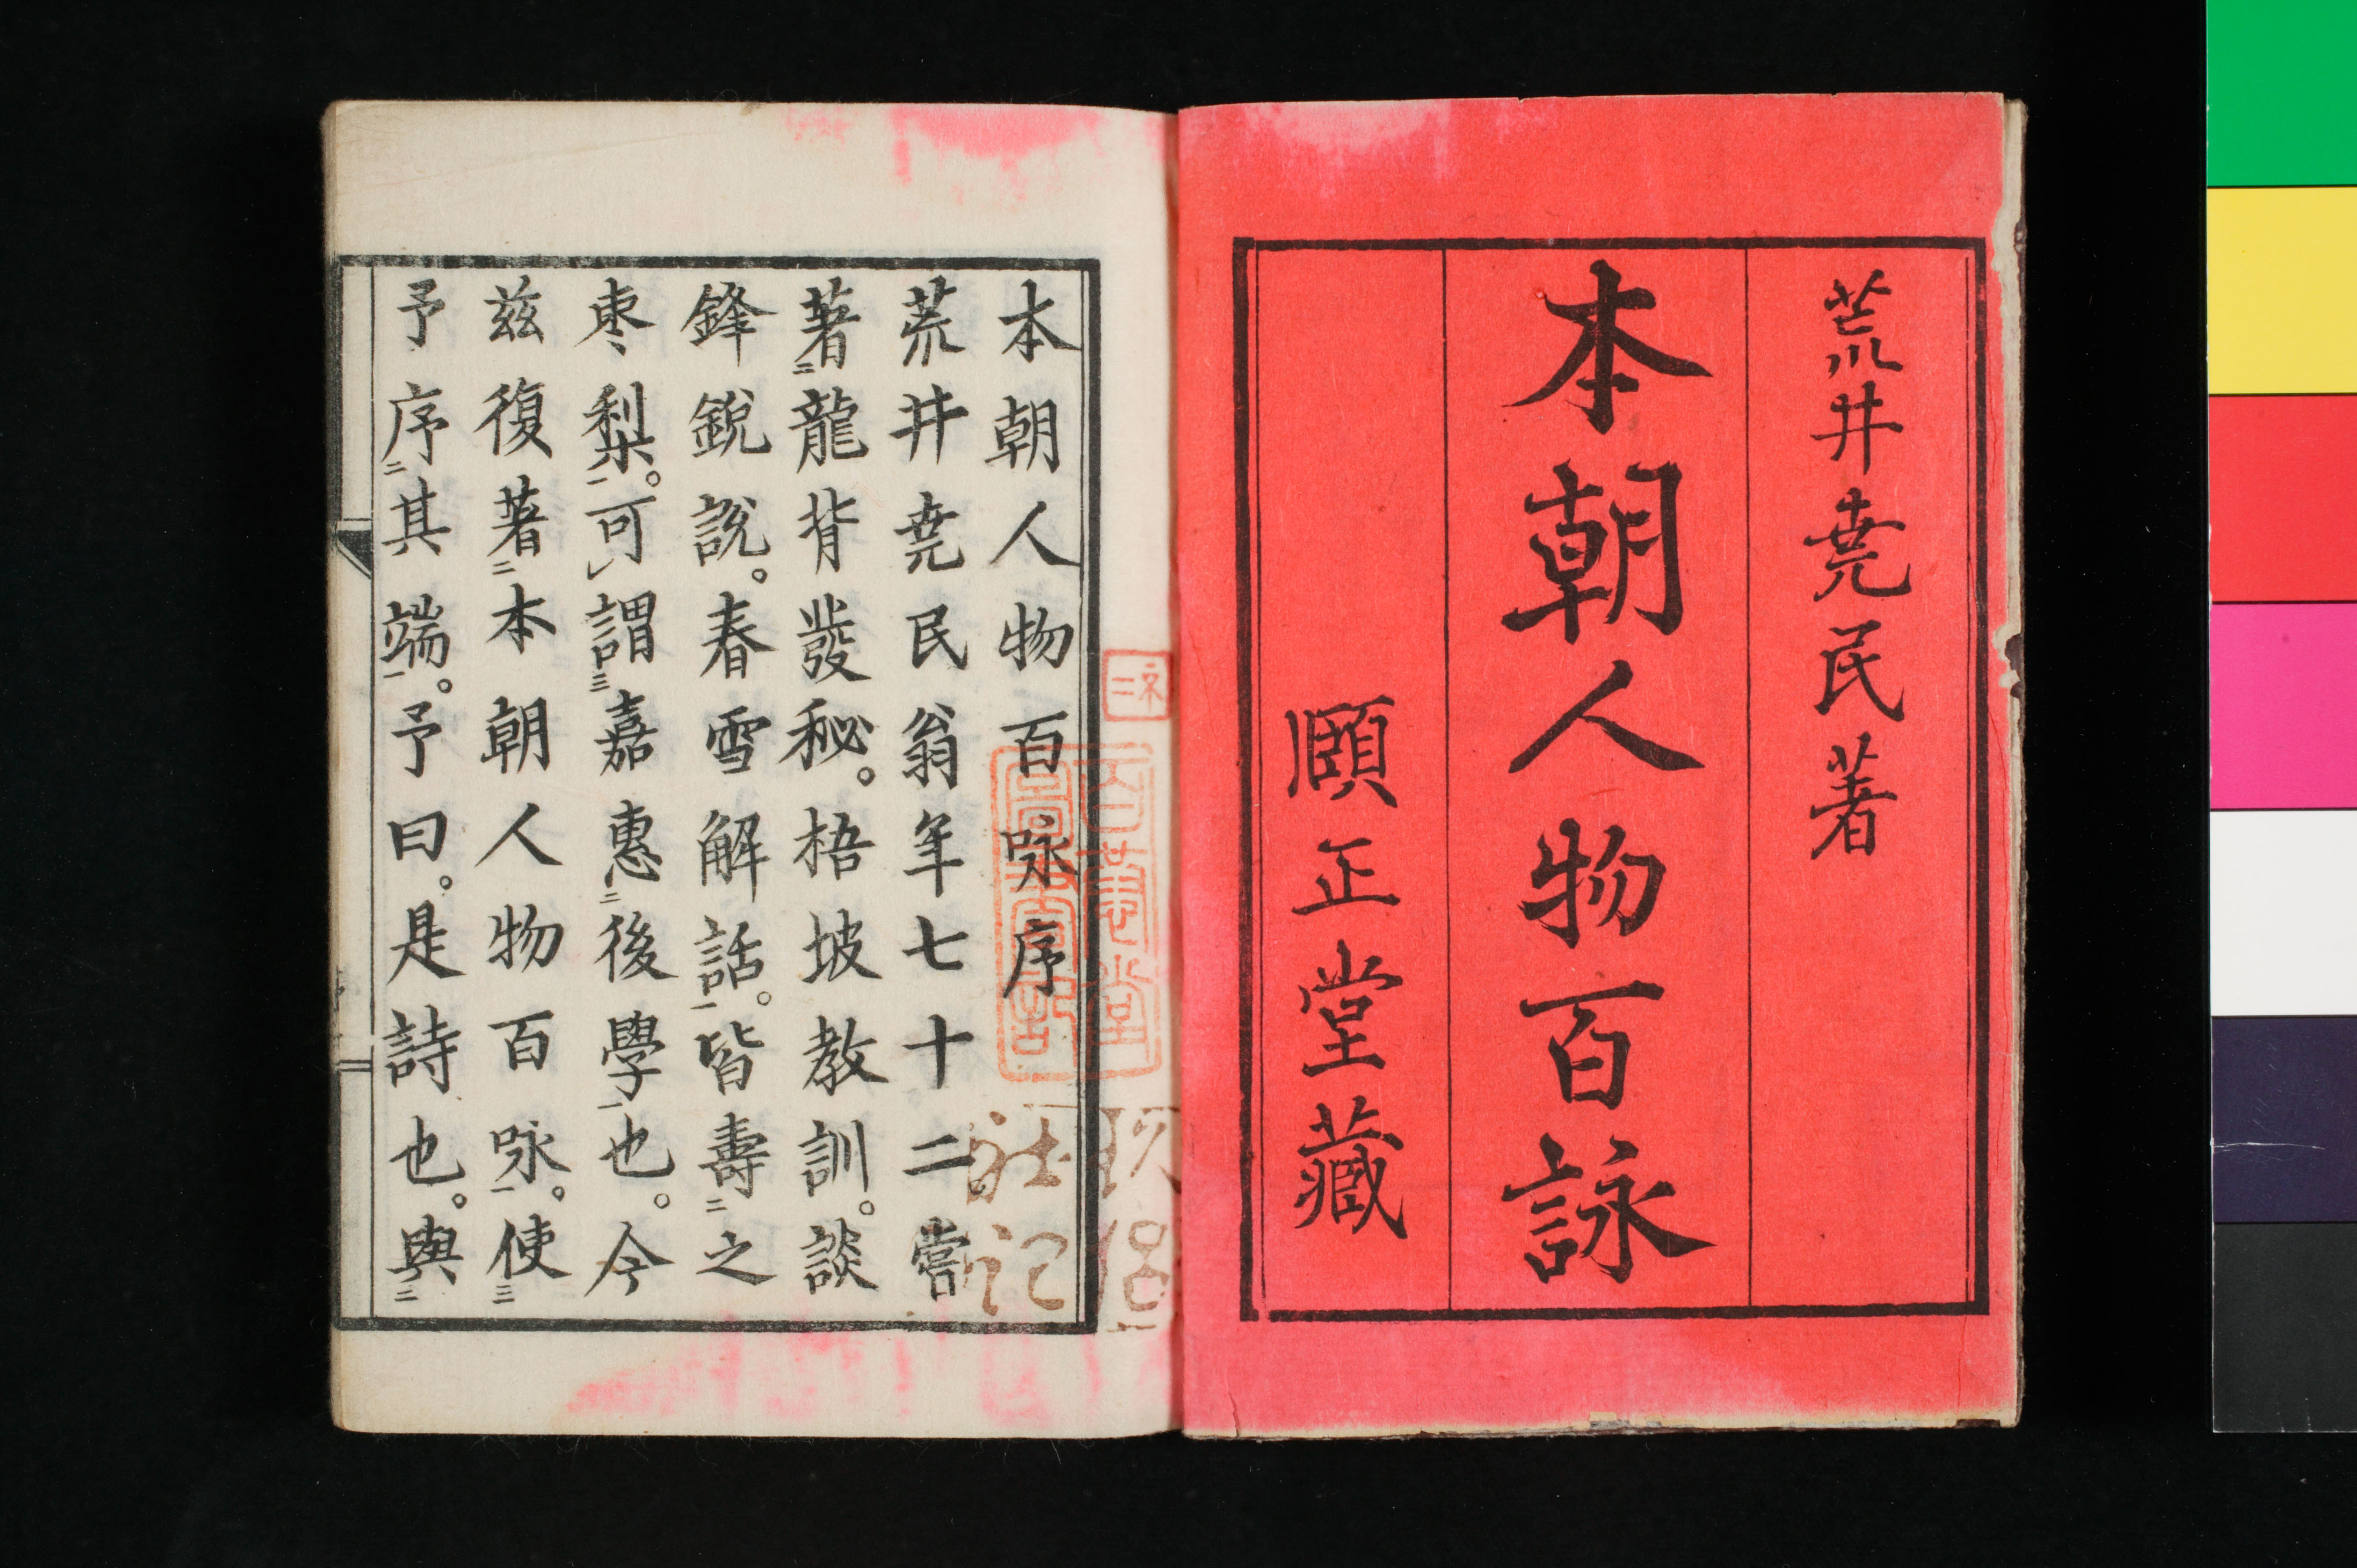 荒井堯民著
本朝人物百詠
頤正堂藏
本朝人物百咏序
荒井堯民翁年七十二。嘗
著二龍背發秘。梧坡教訓。談
鋒銳說。春雪解話。一皆壽二之
棗梨。一可レ謂三嘉惠二後學一也。今
茲復著二本朝人物百咏。一使三
予序二其端。一予曰。是詩也。與二